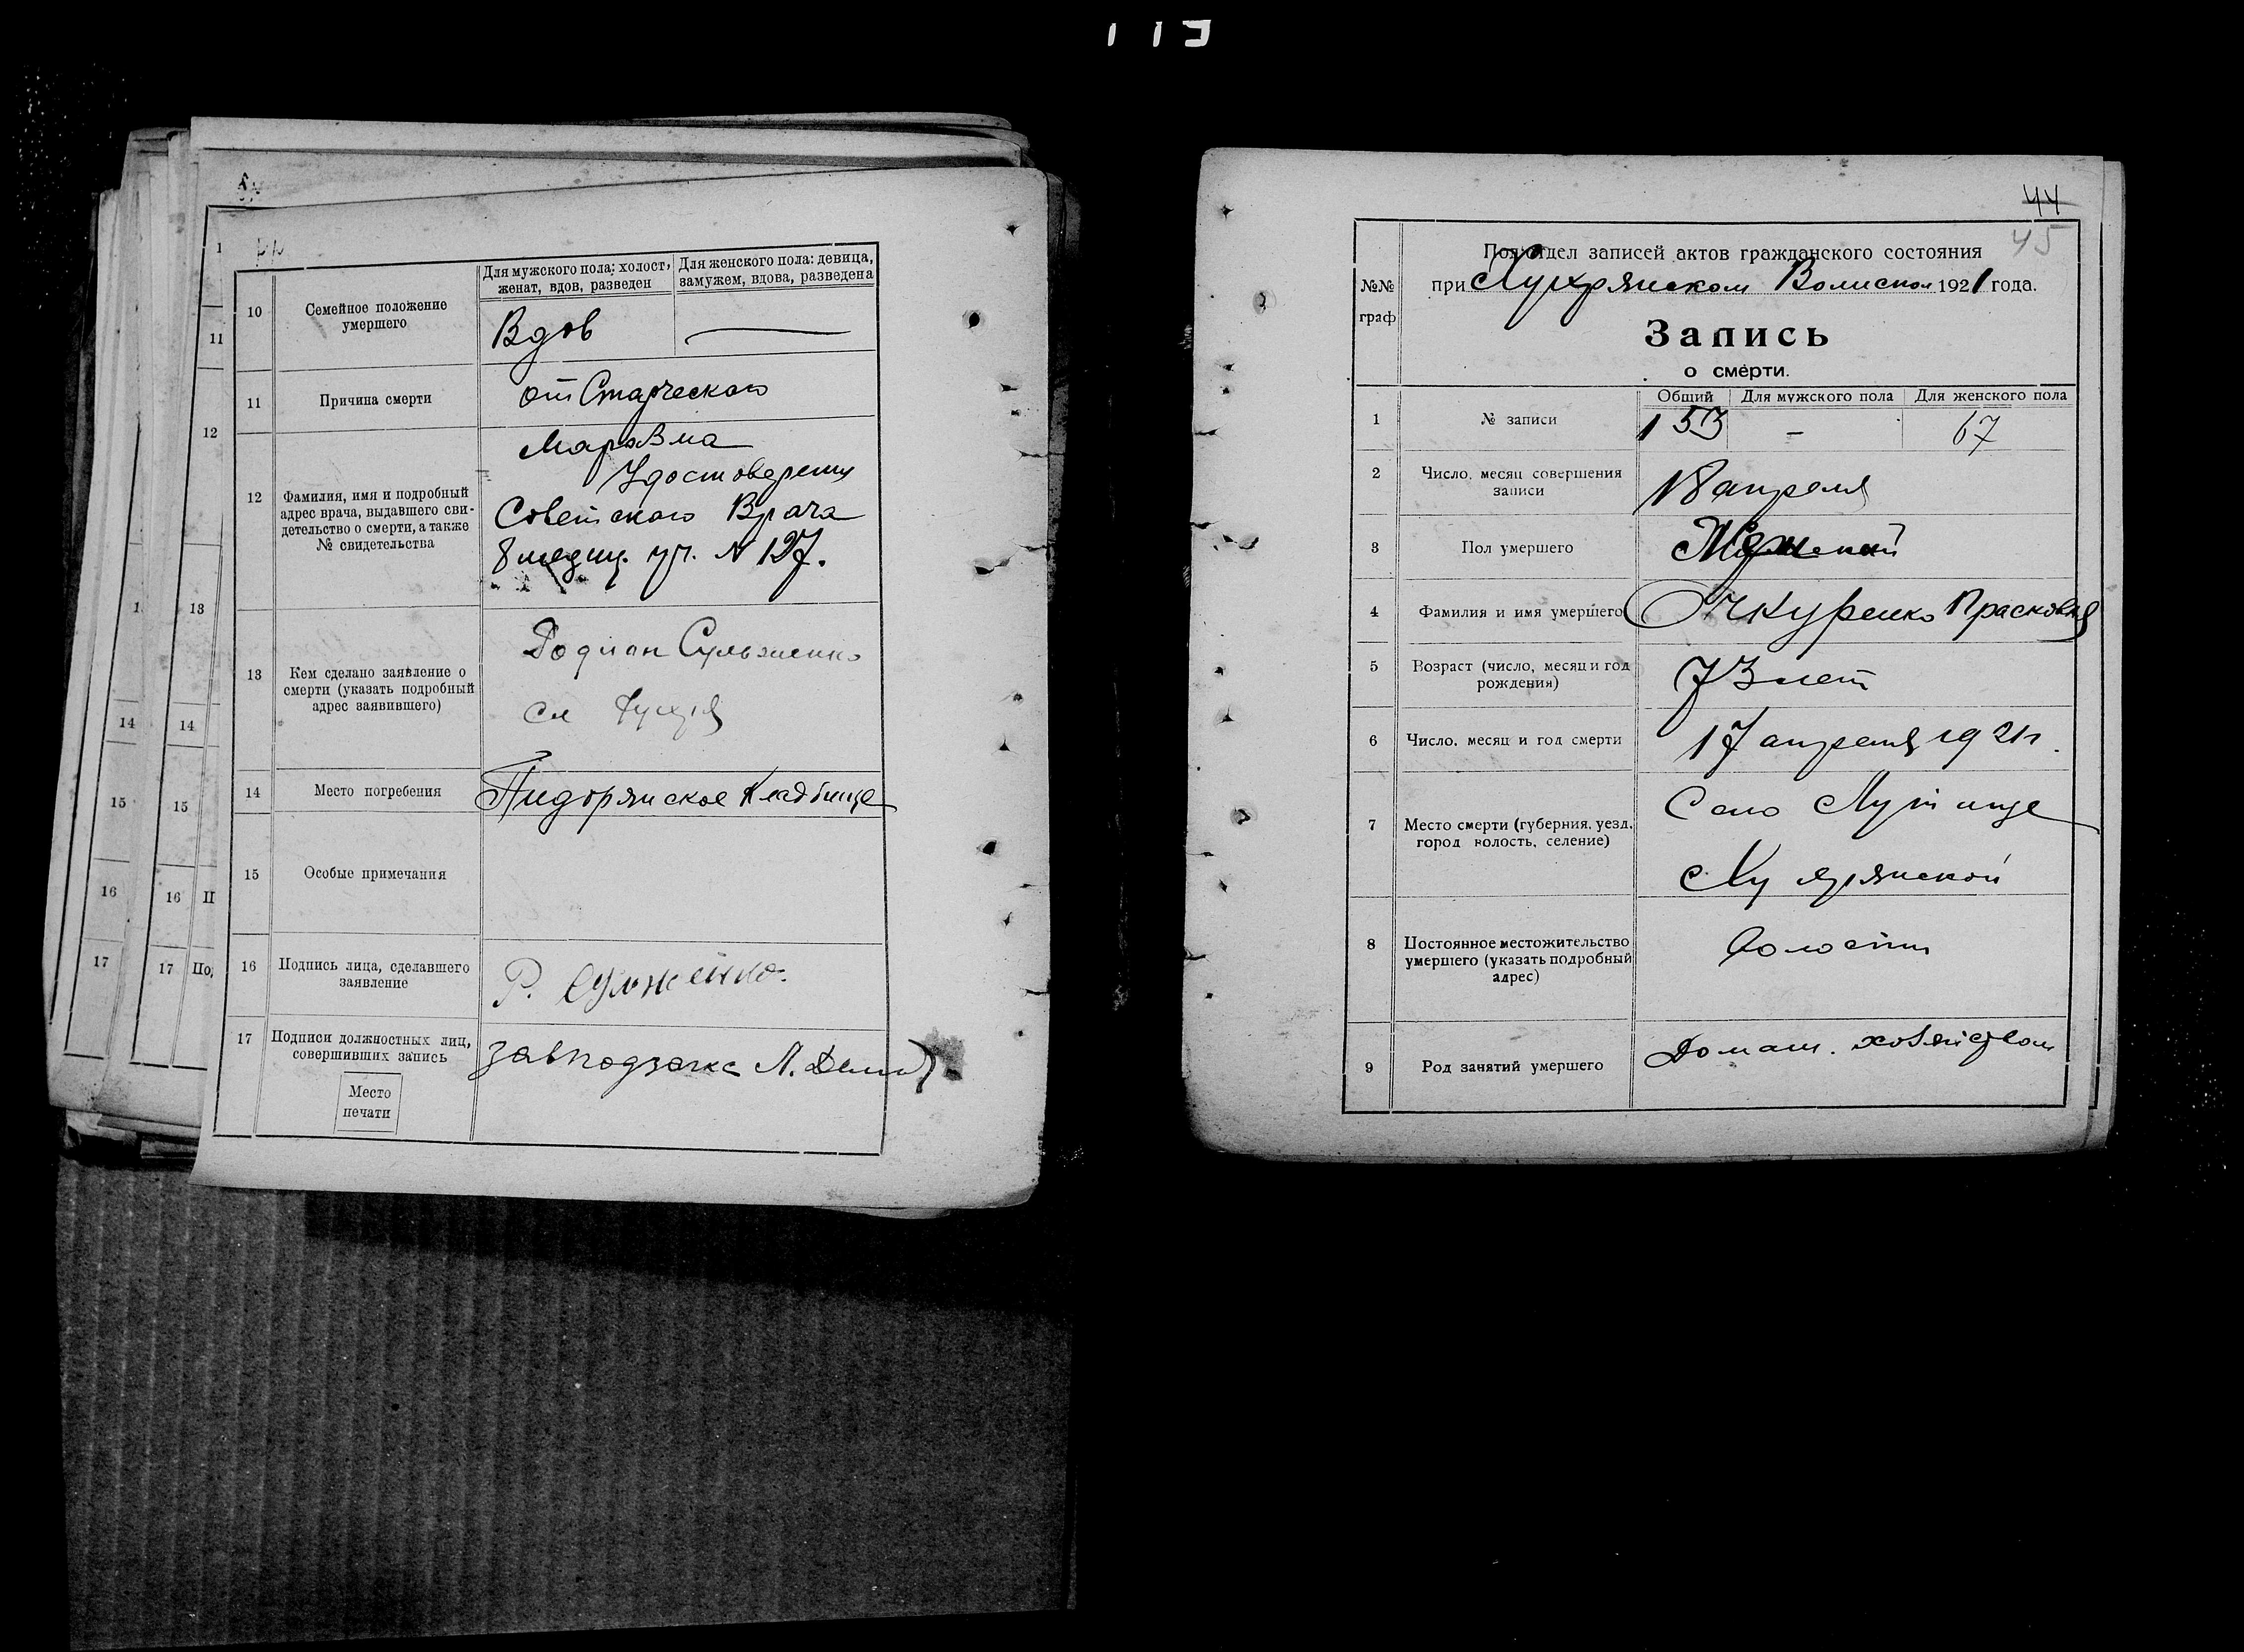 119
10
Семейное положение
умершего
Для мужского пола: холост,
женат, вдов, разведен
Для женского пола: девица,
замужем, вдова, разведена
Вдов
11
Причина смерти
от Старческаго
Маразма
12
Фамилия, имя и подробный
адрес врача, выдавшего сви-
детельство о смерти, а также
№ свидетельства
Удостоверения
Советскаго Врача
8 медиц. уч. № 127.
13
Кем сделано заявление о
смерти (указать подробный
адрес заявившего)
Родион Сульженко
14
Место погребения
Кладбище
15
Особые примечания
16
Подпись лица, сделавшего
заявление
Р. Сулженко.
17
Подписи должностных лиц,
совершивших запись
Завподзагс
Место
печати
44
45
№№
граф
Подотдел записей актов гражданского состояния
при Хухрянском 1921 года.
Запись
о смерти.
1
№ записи
Общий
Для мужского пола
Для женского пола
153
—
67
2
Число, месяц совершения
записи
18 апреля
3
Пол умершего
Женский
4
Фамилия и имя умершего
Очкуренко Прасковья
5
Возраст (число, месяц и год
рождения)
73 лет
6
Число, месяц и год смерти
17 апреля 1921 г.
7
Место смерти (губерния, уезд,
город волость, селение)
Село Лутище
Хухрянской
8
Постоянное местожительство
умершего (указать подробный
адрес)
Волости
9
Род занятий умершего
Домаш. хозяйством